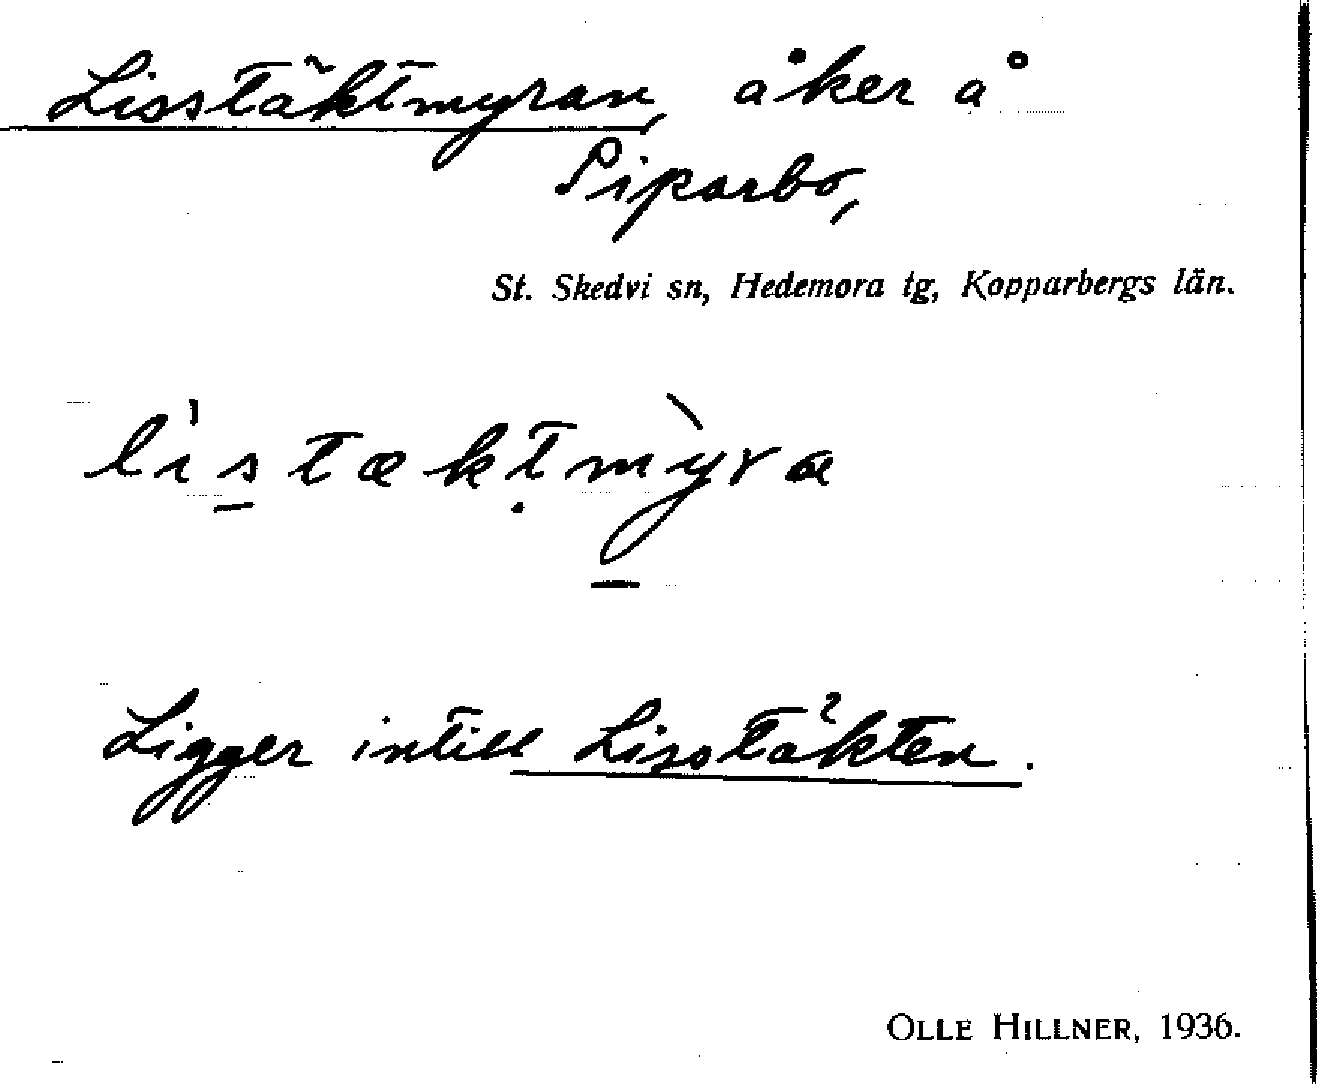 Lisstäktmyran, åker å
Piparbo,
St. Skedvi sn, Hedemora tg, Kopparbergs län.
lìstæktmỳra
Ligger intill Lisstäkten.
OLLE HILLNER, 1936.